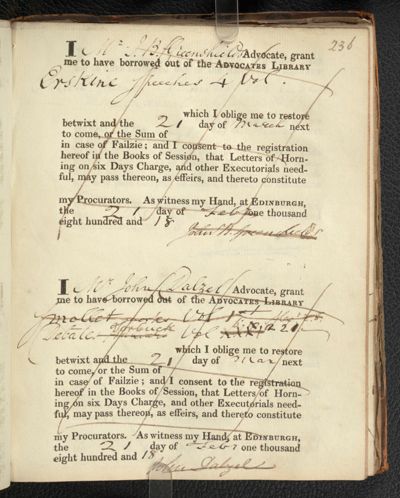 236
I Mr J. B. Greenshields Advocate, grant
me to have borrowed out of the ADVOCATES LIBRARY
Erskine Speeches 4 Vol.
which I oblige me to restore
betwixt and the 21 day of March next
to come, or the Sum of
in case of Failzie; and I consent to the registration
hereof in the Books of Session, that Letters of Horn-
ing on six Days Charge, and other Executorials need-
ful, may pass thereon, as effeirs, and thereto constitute
my Procurators. As witness my Hand, at EDINBURGH,
the 21 day of Febr one thousand
eight hundred and 18
John B. Greenshields
I Mr John Dalzel Advocate, grant
me to have borrowed out of the ADVOCATES LIBRARY
Vol 1st
Vol
which I oblige me to restore
betwixt and the 21 day of Mar next
to come, or the Sum of
in case of Failzie; and I consent to the registration
hereof in the Books of Session, that Letters of Horn-
ing on six Days Charge, and other Executorials need-
ful, may pass thereon, as effeirs, and thereto constitute
my Procurators. As witness my Hand, at EDINBURGH,
the 21 day of Febr one thousand
eight hundred and 18
John Dalzel